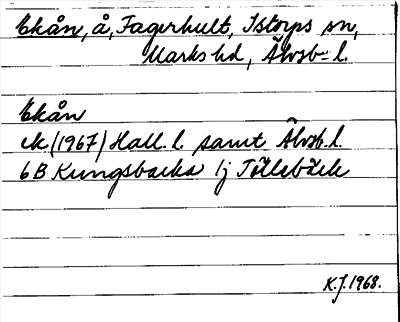 Ekån, å, Fagerhult, Istorps sn,
Marks hd, Älvsb- l.
Ekån
ek. (1967) Hall. l. samt Älvsb. l.
6B Kungsbacka 1j Töllebäck
K.J. 1968.